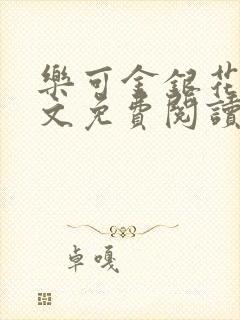 樂可金銀花
文免費閱讀
卓嘎